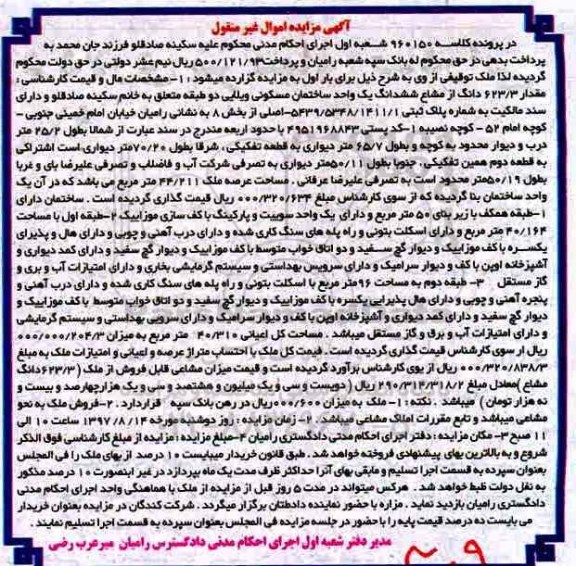 آگهی مزایده اموال غیر منقول
در پرونده کلاسه ۹۶۰۱۵۰ شعبه اول اجرای احکام مدنی محکوم علیه سکینه صادقلو فرزند جان محمد به
پرداخت بدهی در حق محکوم له بانک سپه شعبه رامیان و پرداخت ۵۰۰/۱۲۱/۹۳ ریال نیم عشر دولتی در حق دولت محکوم
گردیده لذا ملک توقیفی از وی به شرح ذیل برای بار اول به مزایده گزارده میشود : ۱- مشخصات مال و قیمت کارشناسی :
مقدار ۶۲۳/۳ دانگ از مشاع ششدانگ یک واحد ساختمان مسکونی ویلایی دو طبقه متعلق به خانم سکینه صادقلو و دارای
سند مالکیت به شماره پلاک ثبتی ۵۴۳۹/۵۳۴۸/۱۴۱۱/۱-اصلی از بخش ۸ به نشانی رامیان خیابان امام خمینی جنوبی -
کوچه امام ۵۲ - کوچه نصیبه ۱-کد پستی ۴۹۵۱۹۶۸۸۴۳ با حدود اربعه مندرج در سند عبارت از شمالا بطول ۲۵/۲ متر
درب و دیوار محدود به کوچه و بطول ۶۵/۷ متر دیواری به قطعه تفکیکی ، شرقا بطول ۷۰/۲۰ متر دیواری است اشتراکی
به قطعه دوم همین تفکیکی ، جنوبا بطول ۵۰/۱۱متر دیواری به تصرفی شرکت آب و فاضلاب و تصرفی علیرضا بای و غربا
بطول ۵۰/۱۹متر محدود است به تصرفی علیرضا عرقانی . مساحت عرصه ملک ۴۴/۲۱۱ متر مربع می باشد که در آن یک
واحد ساختمان بنا گردیده که از سوی کارشناس مبلغ ۰۰۰/۳۲۰/۶۳۴ ریال قیمت گذاری گردیده است . ساختمان دارای
۱-طبقه همکف با زیر بنای ۵۰ متر مربع و دارای یک واحد سوییت و پارکینگ با کف سازی موزاییک ۲-طبقه اول با مساحت
۴۰/۱۶۴ متر مربع و دارای اسکلت بتونی و راه پله های سنگ کاری شده و دارای درب آهنی و چوبی و دارای هال و پذیرای
یکسره با کف موزاییک و دیوار گچ سفید و دو اتاق خواب متوسط با کف موزاییک و دیوار گچ سفید و دارای کمد دیواری و
آشپزخانه اوپن با کف و دیوار سرامیک و دارای سرویس بهداستی و سیستم گرمایشی بخاری و دارای امتیازات آب و بری و
گاز مستقل ۳- طبقه دوم به مساحت ۹۶متر مربع با اسکلت بتونی و راه پله های سنگ کاری شده و دارای درب آهنی و
پنجره آهنی و چوبی و دارای هال پذیرایی یکسره با کف موزاییک و دیوار گچ سفید و دو اتاق خواب متوسط با کف موزاییک و
دیوار گچ سفید و دارای کمد دیواری و آشپزخانه اوپن با کف و دیوار سرامیک و دارای سرویی بهداستی و سیستم گرمایشی
و دارای امتیازات آب و برق و گاز مستقل میباشد . مساحت کل اعیانی ۴۰/۳۱۰ متر مربع به میزان ۰۰۰/۰۰۰/۲۰۴/۳
ریال از سوی کارشناس قیمت گذاری گردیده است . قیمت کل ملک با احتساب متراژ عرصه و اعیانی و امتیازات ملک به مبلغ
۰۰۰/۳۲۰/۸۳۸/۳ ریال از یوی کارشناس برآورد گردیده است و قیمت میزان مشاعی قابل فروش از ملک (۶۲۳/۳دانگ
مشاع)معادل مبلغ ۲۹۰/۳۱۲/۳۱۸/۲ ریال ( دویست و سی و یک میلیون و هشتصد و سی و یک هزارچهارصد و بیست و
نه هزار تومان ) میباشد . نکته : ۱- ملک به میزان ۰۰۰/۶۰۰ریال در رهن بانک سپه قراردارد . ۲-فروش ملک به نحو
مشاعی میباشد و تابع مقررات املاک مشاعی میباشد . ۲- زمان مزایده : روز دوشنبه مورخه ۱۳۹۷/۸/۱۴ ساعت ۱۰ الی
۱۱ صبح ۳- مکان مزایده : دفتر اجرای احکام مدنی دادگستری رامیان ۴-مبلغ مزایده : مزایده از مبلغ کارشناسی فوق الذکر
شروع و به بالاترین بهای پیشنهادی فروخته خواهد شد . طبق قانون خریدار میبایست ۱۰ درصد از بهای ملک را فی المجلس
بعنوان سپرده به قسمت اجرا تسلیم و مابقی بهای آنرا حداکثر ظرف مدت یک ماه بپردازد در غیر اینصورت ۱۰ درصد مذکور
به نفل دولت ظبط خواهد شد . هرکس میتواند در مدت ۵ روز قبل از مزایده از ملک با هماهنگی واحد اجرای احکام مدنی
دادگستری رامیان بازدید نماید . مزاره با حضور نماینده دادطتان برگزار میگردد . شرکت کندگان در مزایده بعنوان خریدار
می بایست ده درصد قیمت پایه را با حضور در جلسه مزایده فی المجلس بعنوان سپرده به قسمت اجرا تسلیم نمایند .
مدیر دفتر شعبه اول اجرای احکام مدنی دادگسترس رامیان میرعرب رضی